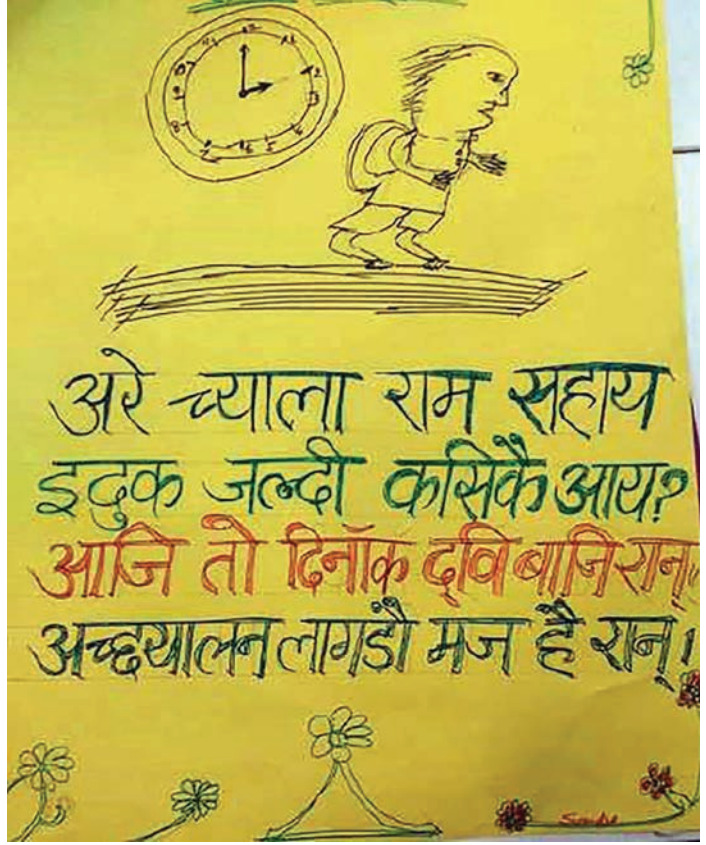 अरे च्याला राम सहाय
इदुक जल्दी कसिकै आय?
आजि तो दिनॉक द्वि बाजि रान्
अच्छयालन लागडौ मज है रान्।